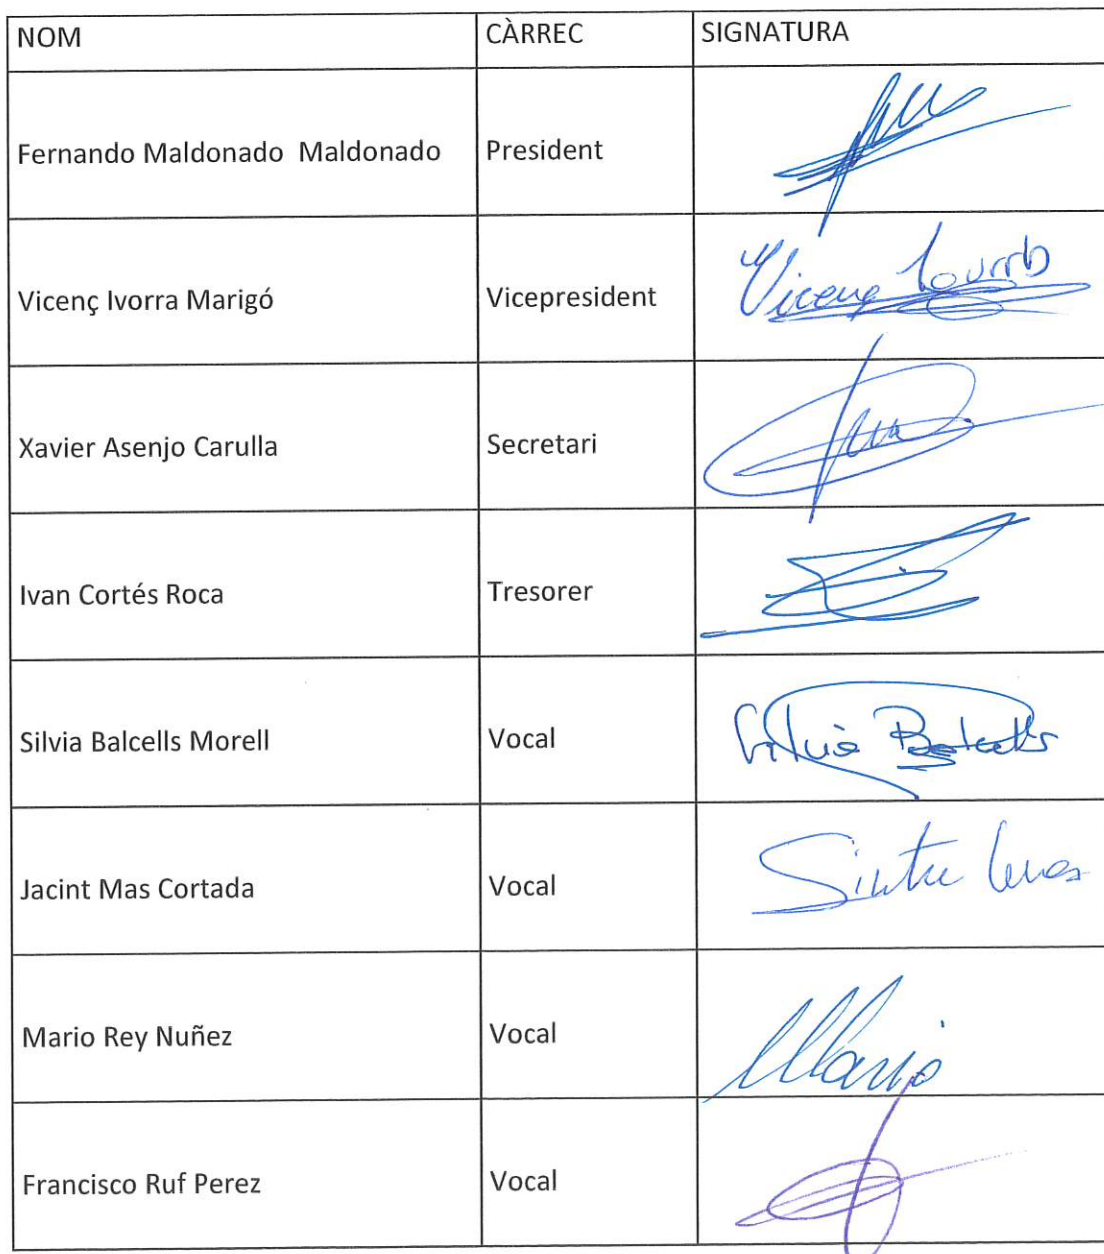 NOM CÀRREC SIGNATURA
Fernando Maldonado Maldonado President
Vicenç Ivorra Marigó Vicepresident Vicenç
Xavier Asenjo Carulla Secretari
Ivan Cortés Roca Tresorer
Silvia Balcells Morell Vocal Silvia Balcells
Jacint Mas Cortada Vocal
Mario Rey Nuñez Vocal Mario
Francisco Ruf Perez Vocal